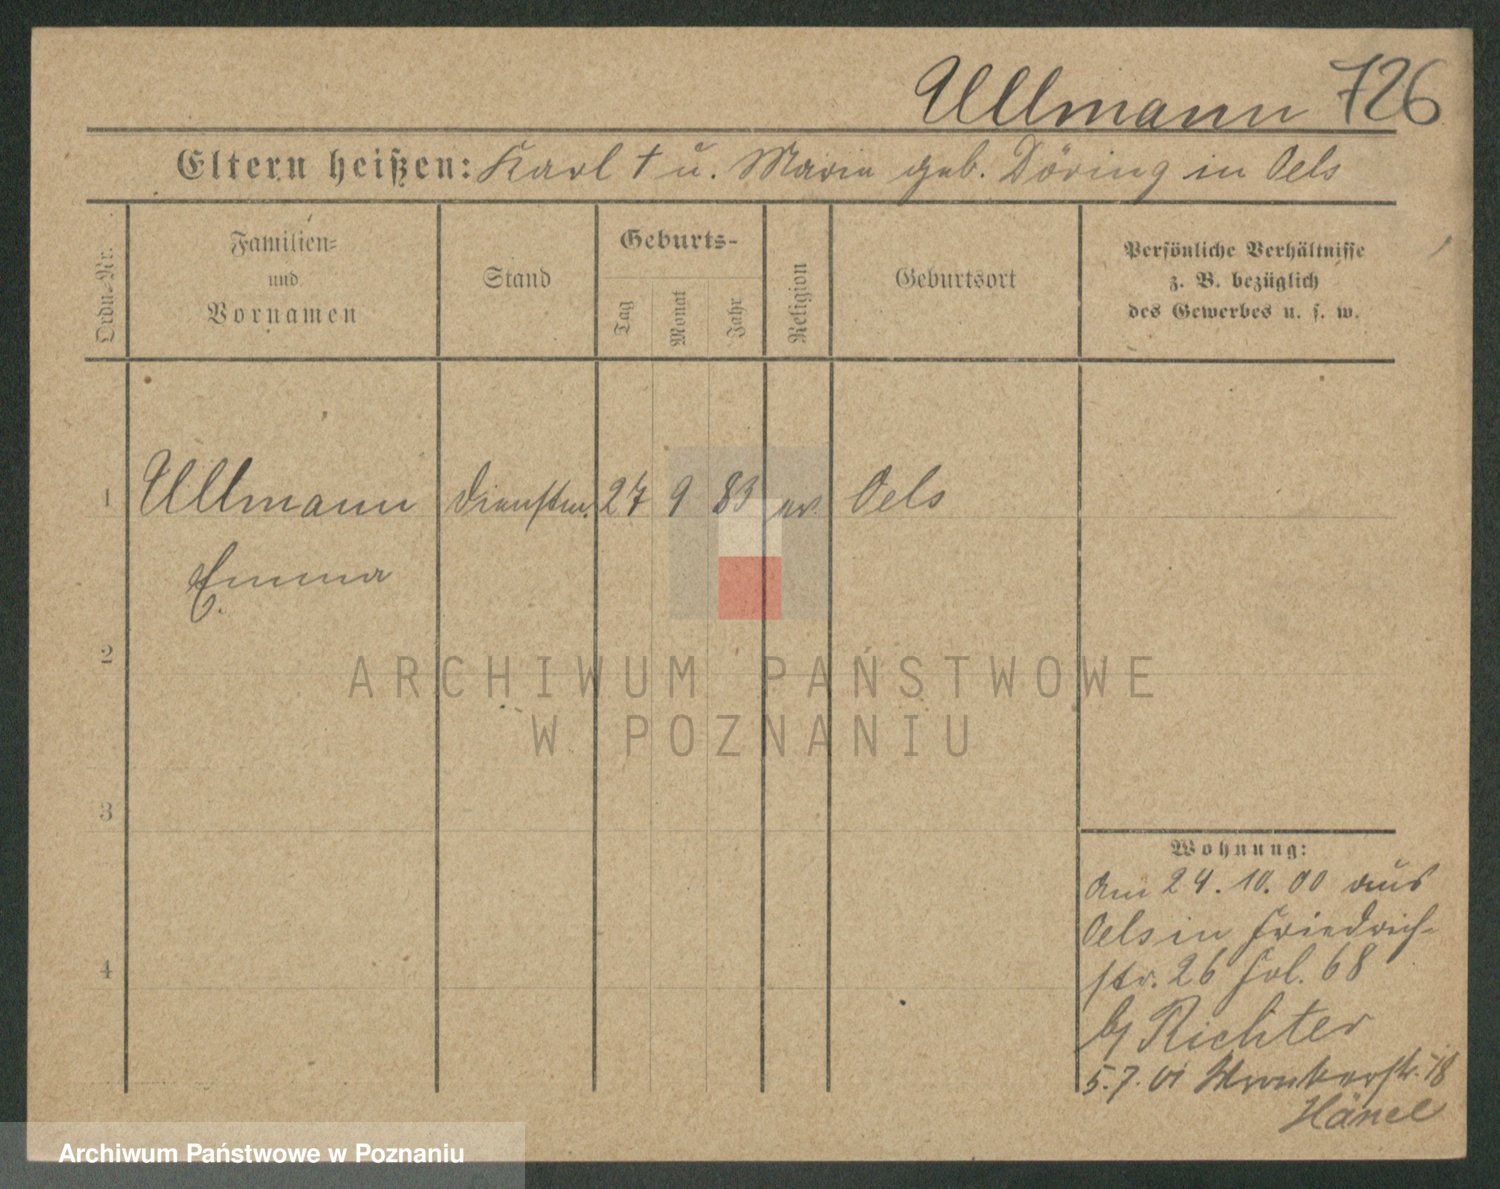 Ullmann 726
Eltern heißen: Karl † u. Marie geb. Döring in Oels
Ordn.-Nr.
Familien-
und
Vornamen
Stand
Geburts-
Tag
Monat
Jahr
Religion
Geburtsort
Persönliche Verhältnisse
z. B. bezüglich
des Gewerbes u. s. w.
1 Ullmann Dienstm. 27 9 83 ev. Oels
Emma
2
3
4
Wohnung:
Am 24. 10. 00 aus
Oels in Friedrich-
str. 26 Fol. 68
b/ Richter
5. 7. 01 18
Hänel
ARCHIWUM PAŃSTWOWE
W POZNANIU
Archiwum Państwowe w Poznaniu